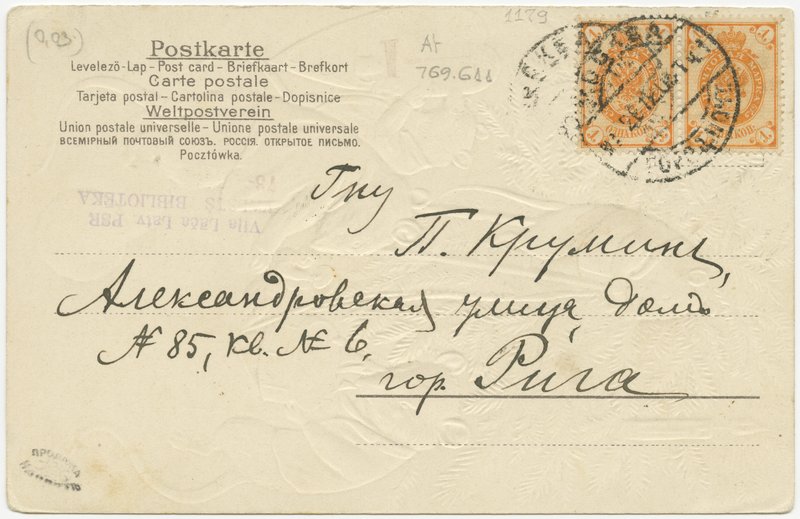 (0,23)
1179
At
769.611
Postkarte
Levelező-Lap – Post card – Briefkaart – Brefkort
Carte postale
Tarjeta postal – Cartolina postale – Dopisnice
Weltpostverein
Union postale universelle – Unione postale universale
ВСЕМІРНЫЙ ПОЧТОВЫЙ СОЮЗЪ. РОССІЯ. ОТКРЫТОЕ ПИСЬМО.
Pocztówka.
Viļa Lāča Latv. PSR
BIBLIOTEKA
Гну
П. Круминъ,
Александровская улица, домъ
№ 85, кв. № 6,
гор. Рига